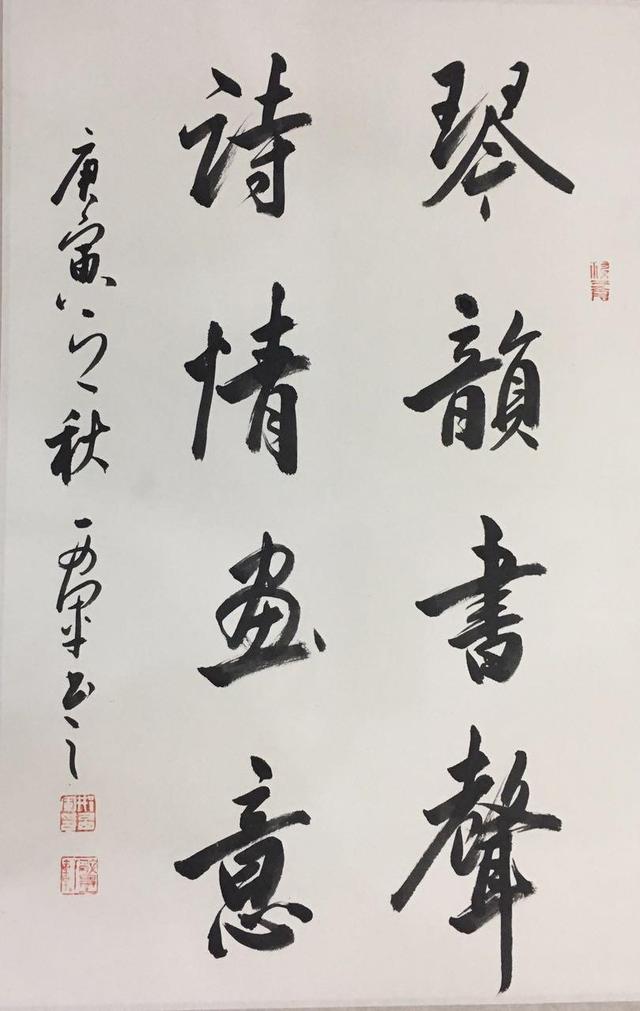 琴韻書聲
詩情畫意
庚寅八月秋 書之